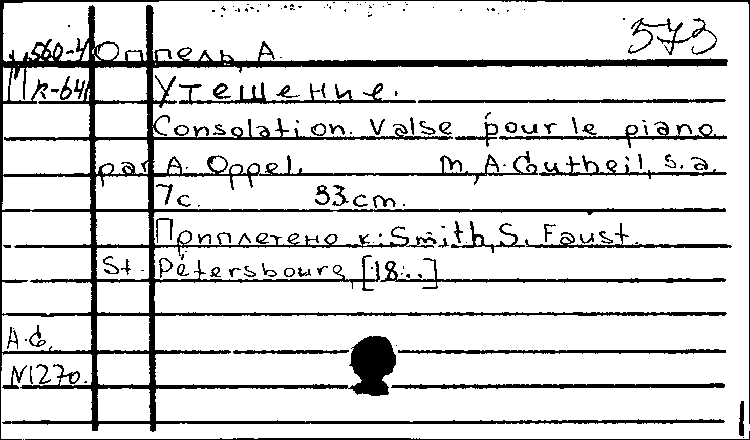 573
М560-4 Оппель, А.
К-641 Утешение.
Consolation. Valse pour le piano
par A. Oppel. M., A. Gutheil, s. a.
7с. 33cm.
Приплетено к: Smith, S. Faust.
St. Pétersbourg, [18...]
A.G.
N1270.